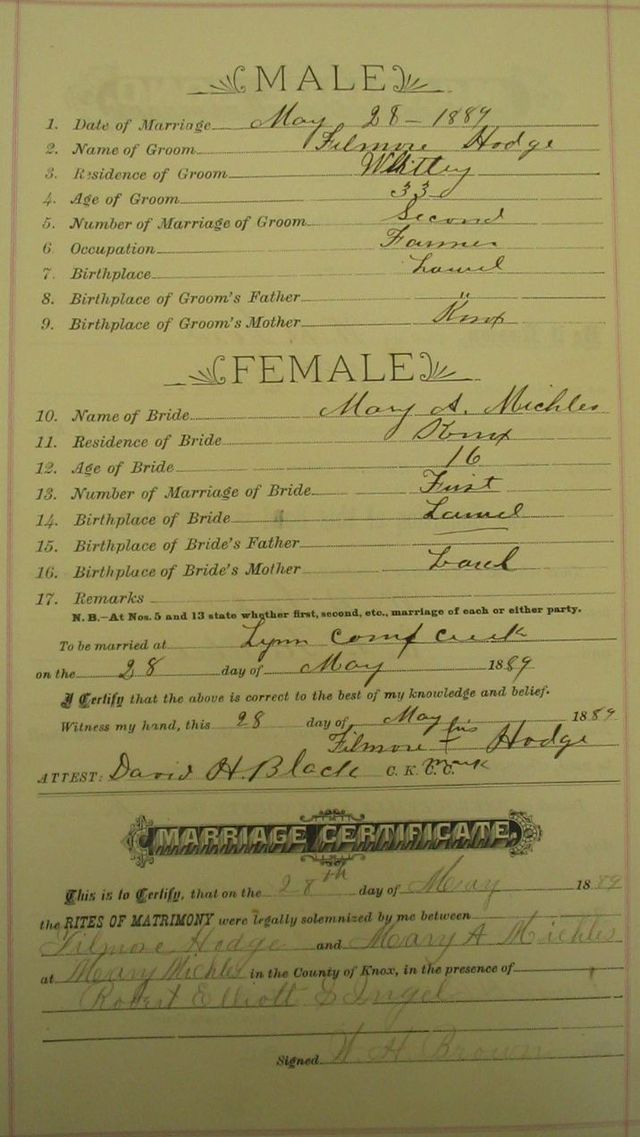 MALE
1. Date of Marriage May 28 - 1889
2. Name of Groom Filmore Hodge
3. Residence of Groom Whitley
4. Age of Groom 33
5. Number of Marriage of Groom Second
6 Occupation Farmer
7. Birthplace Laurel
8. Birthplace of Groom's Father "
9. Birthplace of Groom's Mother Knox
FEMALE
10. Name of Bride Mary A. Michles
11. Residence of Bride Knox
12. Age of Bride 16
13. Number of Marriage of Bride First
14. Birthplace of Bride Laurel
15. Birthplace of Bride's Father
16. Birthplace of Bride's Mother
17. Remarks
N. B.—At Nos. 5 and 13 state whether first, second, etc., marriage of each or either party.
To be married at Lynn Camp Creek
on the 28 day of May 1889
I Certify that the above is correct to the best of my knowledge and belief.
Witness my hand, this 28 day of May 1889
Filmore his + mark Hodge
ATTEST: David H. Black C. K. C. C.
MARRIAGE CERTIFICATE.
This is to Certify, that on the 28th day of May 1889
the RITES OF MATRIMONY were legally solemnized by me between
Filmore Hodge and Mary A Michles
at Mary Michles in the County of Knox, in the presence of
Robert Elliott S Ingel
Signed W. H. Brown